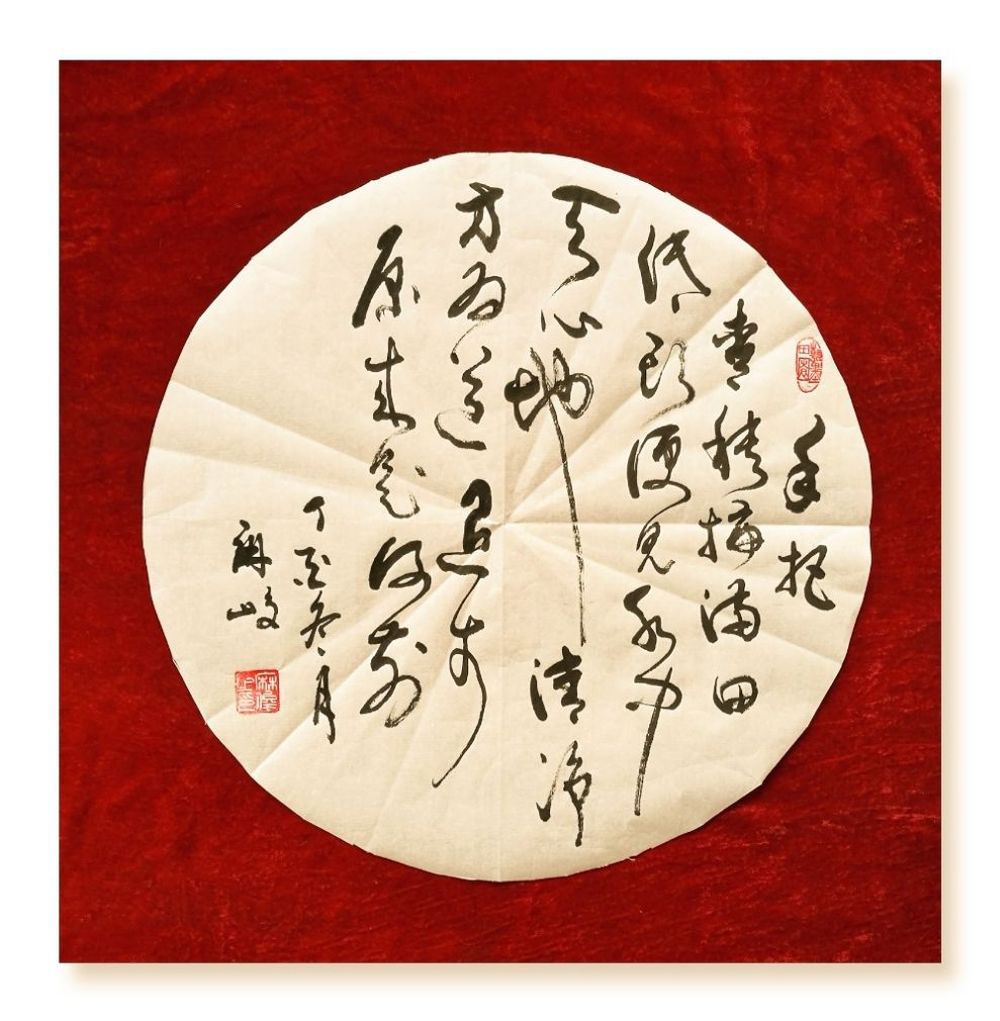 手把
青秧插满田
低头便见水中
天心地清净
方为道退步
原来是向前
丁酉冬月
麻峻